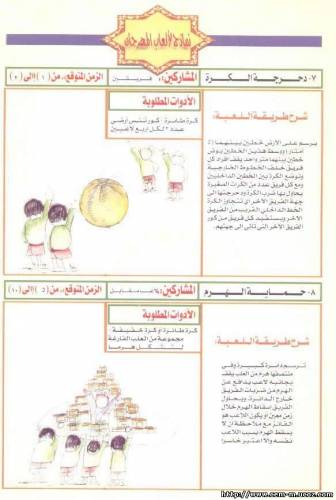 نماذج لألعاب المهرجان
٧- دحرجة الكرة
المشاركين: فريقين
الزمن المتوقع، من (١) الى (٥)
الأدوات المطلوبة
كرة طائرة - كور تنس ارضي
عدد لكل أربع لاعبين
شرح طريقة اللعبة:
يرسم على الارض خطين بينهما (٤
أمتار) وسط هذين الخطين يوضع
خطين بينهما متر واحد يقف أفراد كل
فريق خلف الخطوط الخارجية
وتوضع الكرة بين الخطين الداخليين
ومع كل فريق عدد من الكرات الصغيرة
يحاول بها ضرب الكرة ودحرجتها الى
جهة الفريق الآخر اي تتجاوز الكرة
الخط الداخلي القريب من الفريق
الآخر ويستفيد كل فريق من كور
الفريق الآخر التى تأتى الى جهتهم.
٨- حماية الهرم
المشاركين: لاعب مقابل
الزمن المتوقع، من (٥) الى (١٠)
الأدوات المطلوبة
كرة طائرة او كرة خفيفة
مجموعة من العلب الفارغة
لتشكل هرما
شرح طريقة اللعبة:
ترسم دائرة كبيرة وفى
منتصفها هرم من العلب يقف
بجانبه لاعب يدافع عن
الهرم من ضربات الفريق
خارج الدائرة. ويحاول
الفريق اسقاط الهرم خلال
زمن معين او يكون اللاعب هو
الفائز مع ملاحظة ان لا
يسقط الهرم بسبب اللاعب
نفسه والا اعتبر خاسرا
http://www.sem-m.ucoz.com